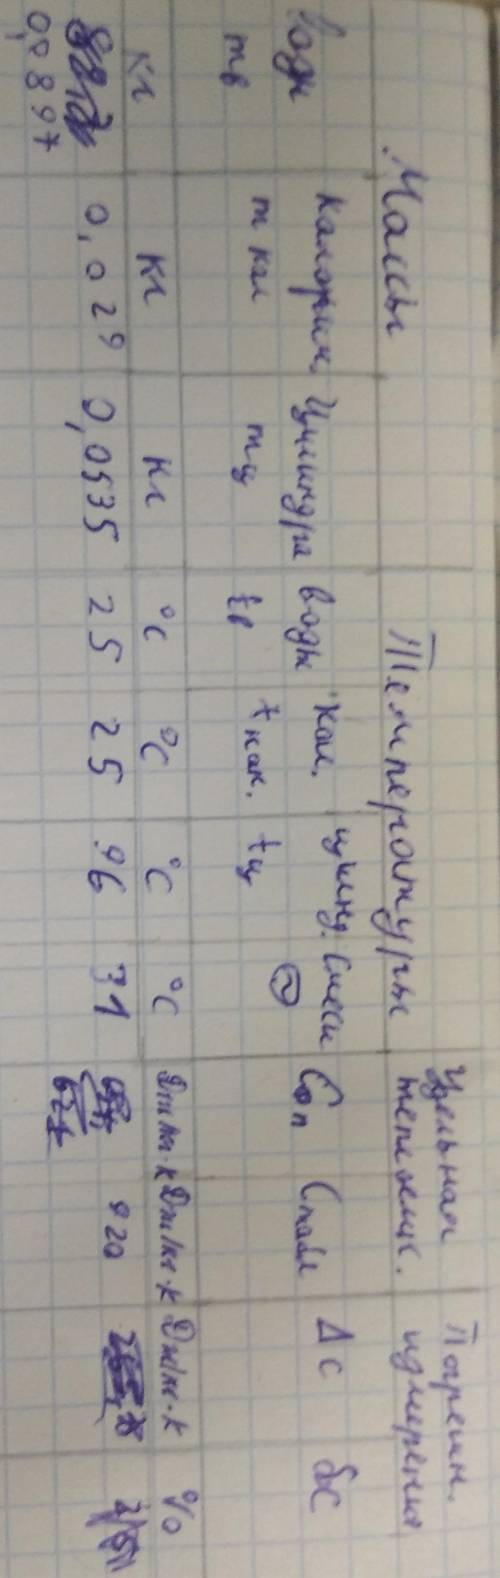 Массы Температуры Удельная теплоемк. Погреш. измерения
воды калорим. Цилиндра воды кал. цилинд. смеси Cоп Cтабл Δc δc
mв mкал mц tв tкал. tц
кг кг кг °C °C °C °C Дж/кг·К Дж/кг·К Дж/кг·К %
0,029 0,0535 25 25 96 31 920
0,0897